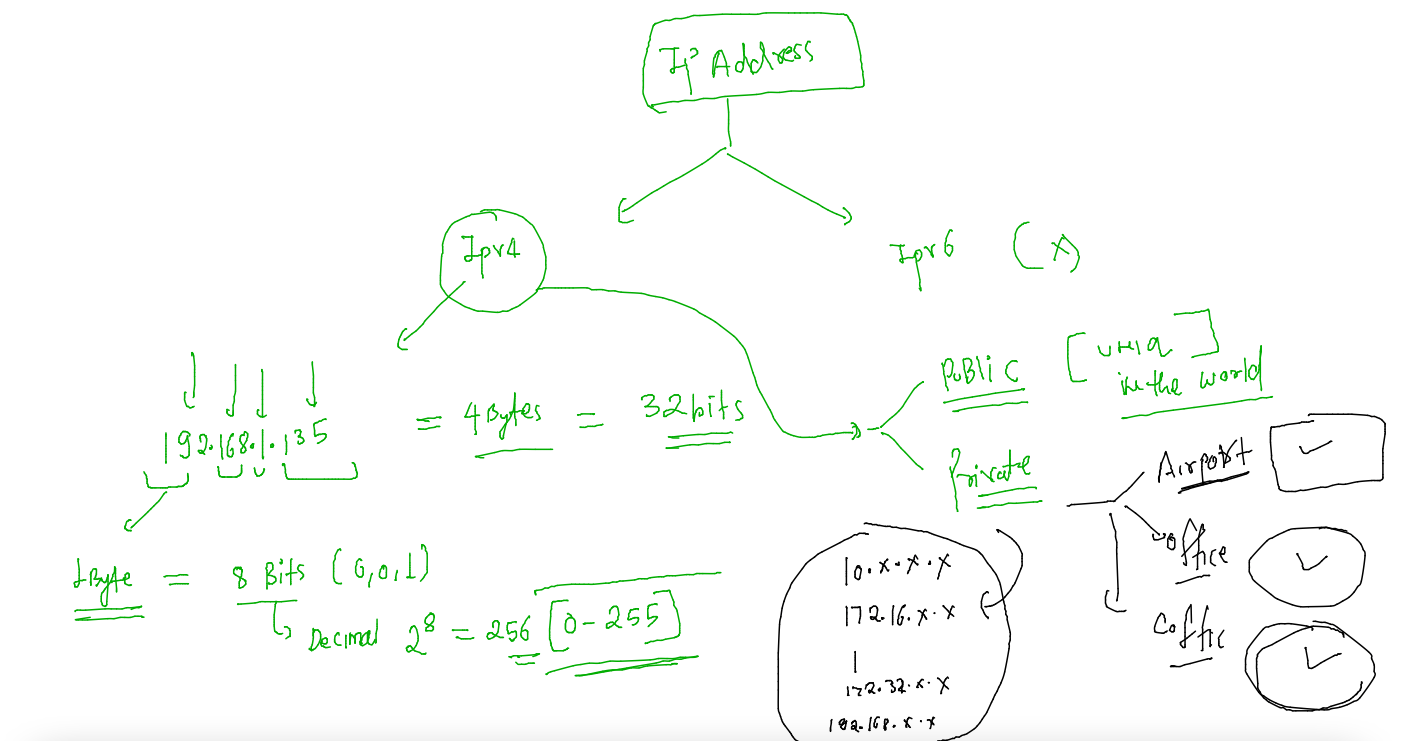 IP Address
Ipv4
Ipv6 (x)
192.168.1.135 = 4 Bytes = 32 bits
1 Byte = 8 Bits (0,0,1)
Decimal 2^8 = 256 [0-255]
PUBLIC [uniq]
in the world
Private
Airport
office
Coffic
10.x.x.x
172.16.x.x
|
172.32.x.x
192.168.x.x